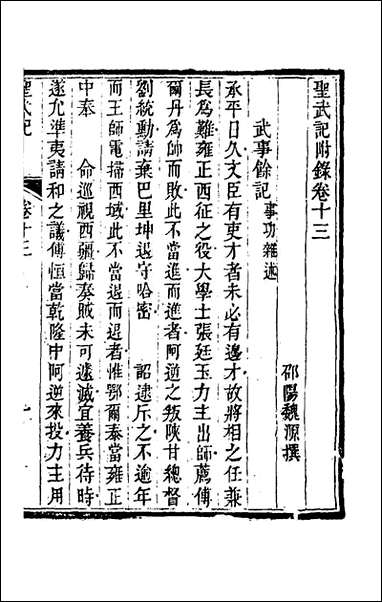 聖武記附錄卷十三
邵陽魏源撰
武事餘記事功雜述
承平日久文臣有吏才者未必有邊才故將相之任兼
長爲難雍正西征之役大學士張廷玉力主出師薦傅
爾丹爲帥而敗此不當進而進者阿道之叛陝甘總督
劉統勳請棄巴里坤退守哈密 詔逮斥之不逾年
而王師電掃西域此不當退而退者惟鄂爾泰當雍正
中奉 命巡視西疆歸奏賊未可遽滅宜養兵待時
遂允準夷請和之議傅恒當乾隆中阿逆來投力主用
聖武記
卷十三